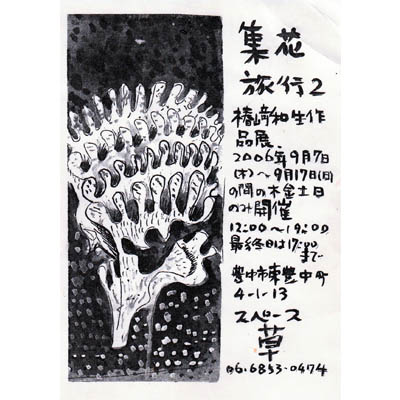 集花
旅行2
椿崎和生作
品展
2006年9月7日
(木)〜9月17日(日)
の間の木金土日
のみ開催
12:00〜19:00
最終日は17:00
まで
豊中市東豊中町
4-1-13
スペース
草
06.6853-0474